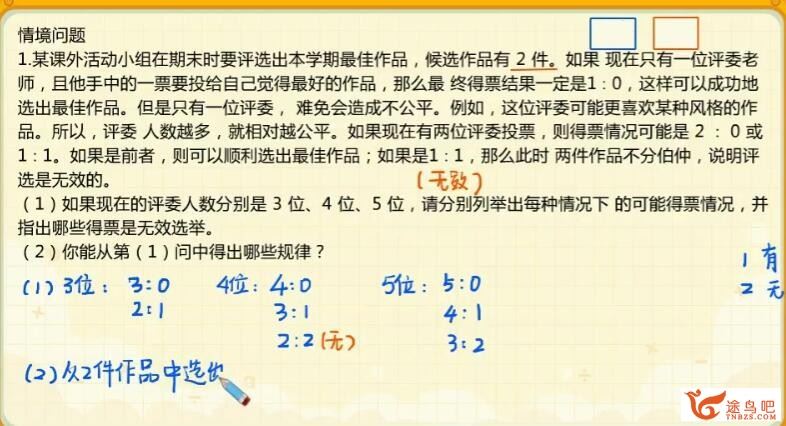 情境问题
1.某课外活动小组在期末时要评选出本学期最佳作品，候选作品有 2 件。如果 现在只有一位评委老
师，且他手中的一票要投给自己觉得最好的作品，那么最 终得票结果一定是1：0，这样可以成功地
选出最佳作品。但是只有一位评委， 难免会造成不公平。例如，这位评委可能更喜欢某种风格的作
品。所以，评委 人数越多，就相对越公平。如果现在有两位评委投票，则得票情况可能是 2 ：0 或
1：1。如果是前者，则可以顺利选出最佳作品；如果是1：1，那么此时 两件作品不分伯仲，说明评
选是无效的。
(无效)
（1）如果现在的评委人数分别是 3 位、4 位、5 位，请分别列举出每种情况下 的可能得票情况，并
指出哪些得票是无效选举。
（2）你能从第（1）问中得出哪些规律？
1 有
2 无
(1) 3位： 3:0 4位： 4:0 5位： 5:0
2:1 3:1 4:1
2:2 (无) 3:2
(2) 从2件作品中选出
途鸟吧
TNBZS.COM